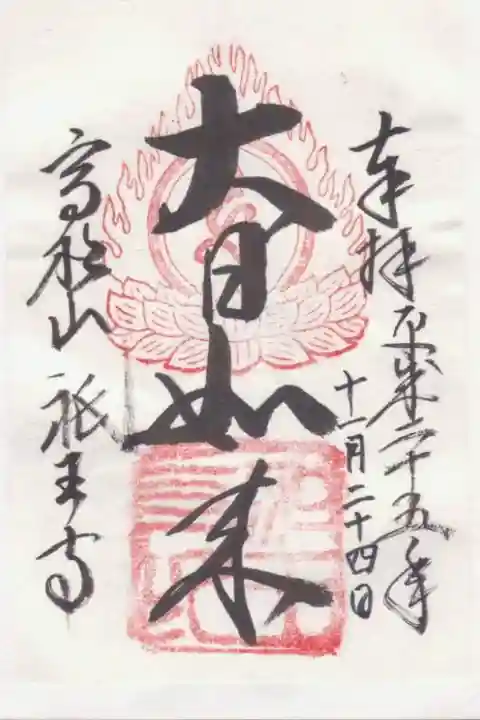 奉拝
平成二十五年
十一月二十四日
大日如来
高松山 祇王寺